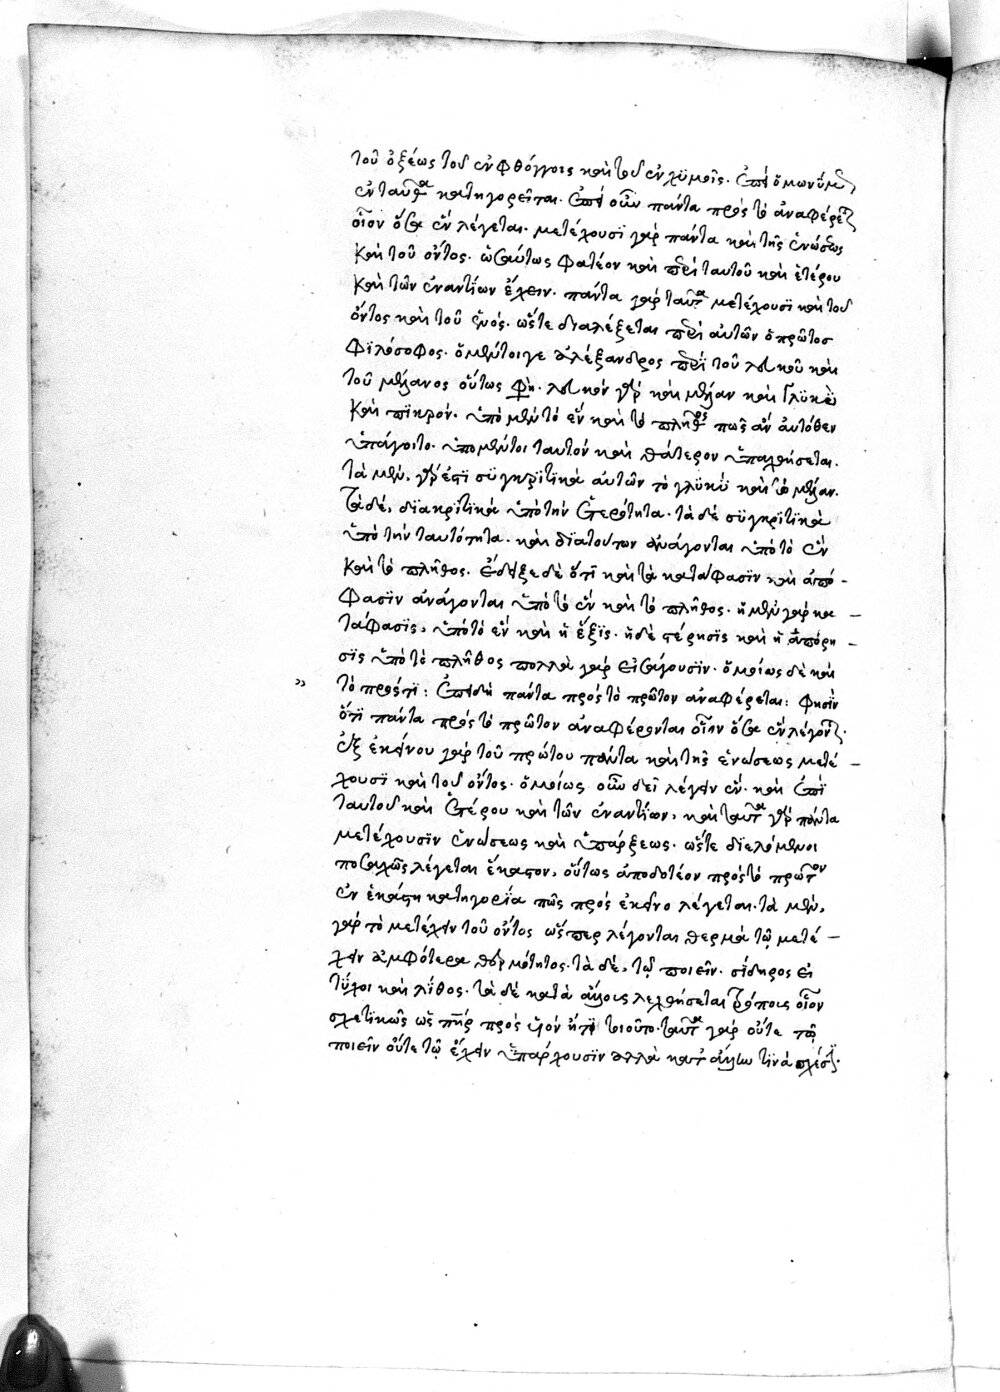 τοῦ ὀξέως τοῦ ἐν φθόγγοις καὶ τοῦ ἐν χϋμοῖς. ἐπεὶ ὁμωνΰμως
ἐνταῦθα κατηγορεῖται. ἐπεὶ οὖν πάντα πρὸς τὸ ἀναφέρεται
οἷον ὅσα ἓν λέγεται. μετέχουσϊ γὰρ πάντα καὶ τῆς ἑνώσεως
καὶ τοῦ ὄντος. ὡσαύτως φατέον καὶ περὶ ταυτοῦ καὶ ἑτέρου
καὶ τῶν ἐναντΐων ἔχειν. πάντα γὰρ ταῦτα μετέχουσϊ καὶ τοῦ
ὄντος καὶ τοῦ ἑνός. ὥστε διαλέξεται περὶ αὐτῶν ὁ πρῶτος
φϊλόσοφος. ὁ μέντοιγε ἀλέξανδρος περὶ τοῦ λευκοῦ καὶ
τοῦ μέλανος οὕτως φησὶ. λευκὸν γὰρ καὶ μέλαν καὶ γλϋκὺ
καὶ πϊκρόν. ὑπὸ μὲν τὸ ἓν καὶ τὸ πλῆθος πῶς ἂν αὐτόθεν
ὑπάγοιτο. ὑπὸ μέντοι ταυτὸν καὶ θάτερον ὑπαχθήσεται.
τὰ μὲν, γάρ ἐστϊ σϋγκρϊτϊκὰ αὐτῶν τὸ γλϋκὺ καὶ τὸ μέλαν.
τὰ δέ, δϊακρϊτϊκὰ ὑπὸ τὴν ἑτερότητα. τὰ δὲ σϋγκρϊτϊκὰ
ὑπὸ τὴν ταυτότητα. καὶ δϊὰ τούτων ἀνάγονται ὑπὸ τὸ ἓν
καὶ τὸ πλῆθος. ἔδειξε δὲ ὅτϊ καὶ τὰ κατάφασϊν καὶ ἀπό-
φασϊν ἀνάγονται ὑπὸ τὸ ἓν καὶ τὸ πλῆθος. ἡ μὲν γὰρ κα-
τάφασϊς, ὑπὸ τὸ ἓν καὶ ἡ ἕξϊς. ἡ δὲ στέρησϊς καὶ ἡ ἀπόφη-
σϊς ὑπὸ τὸ πλῆθος πολλὰ γὰρ εἰσάγουσϊν. ὁμοίως δὲ καὶ
τὸ πρός τϊ: ἐπειδὴ πάντα πρὸς τὸ πρῶτον ἀναφέρεται: φησὶν
ὅτϊ πάντα πρὸς τὸ πρῶτον ἀναφέρονται οἷον ὅσα ἓν λέγονται.
ἐξ ἐκείνου γὰρ τοῦ πρώτου πάντα καὶ τῆς ἑνώσεως μετέ-
χουσϊ καὶ τοῦ ὄντος. ὁμοίως οὖν δεῖ λέγειν ἓν. καὶ ἐπὶ
ταυτοῦ καὶ ἑτέρου καὶ τῶν ἐναντίων, καὶ ταῦτα γὰρ πάντα
μετέχουσϊν ἑνώσεως καὶ ὑπάρξεως. ὥστε δϊελόμενοι
ποσαχῶς λέγεται ἕκαστον, οὕτως ἀποδοτέον πρὸς τὸ πρῶτον
ἐν ἑκάστη κατηγορΐα πῶς πρὸς ἐκεῖνο λέγεται. τὰ μὲν,
γὰρ τὸ μετέχειν τοῦ ὄντος ὥσπερ λέγονται θερμὰ τῷ μετέ-
χειν ἀμφότερα θερμότητος. τὰ δέ, τῷ ποιεῖν. σίδηρος εἰ
τΰχοι καὶ λΐθος. τὰ δὲ κατὰ ἄλλους λεχθήσεται τρόπους οἷον
σχετϊκῶς ὡς πατὴρ πρὸς υἱὸν ἤ τϊ τοιοῦτο. ταῦτα γὰρ οὔτε τῷ
ποιεῖν οὔτε τῷ ἔχειν ὑπάρχουσϊν ἀλλὰ κατ' ἄλλην τϊνὰ σχέσϊν.